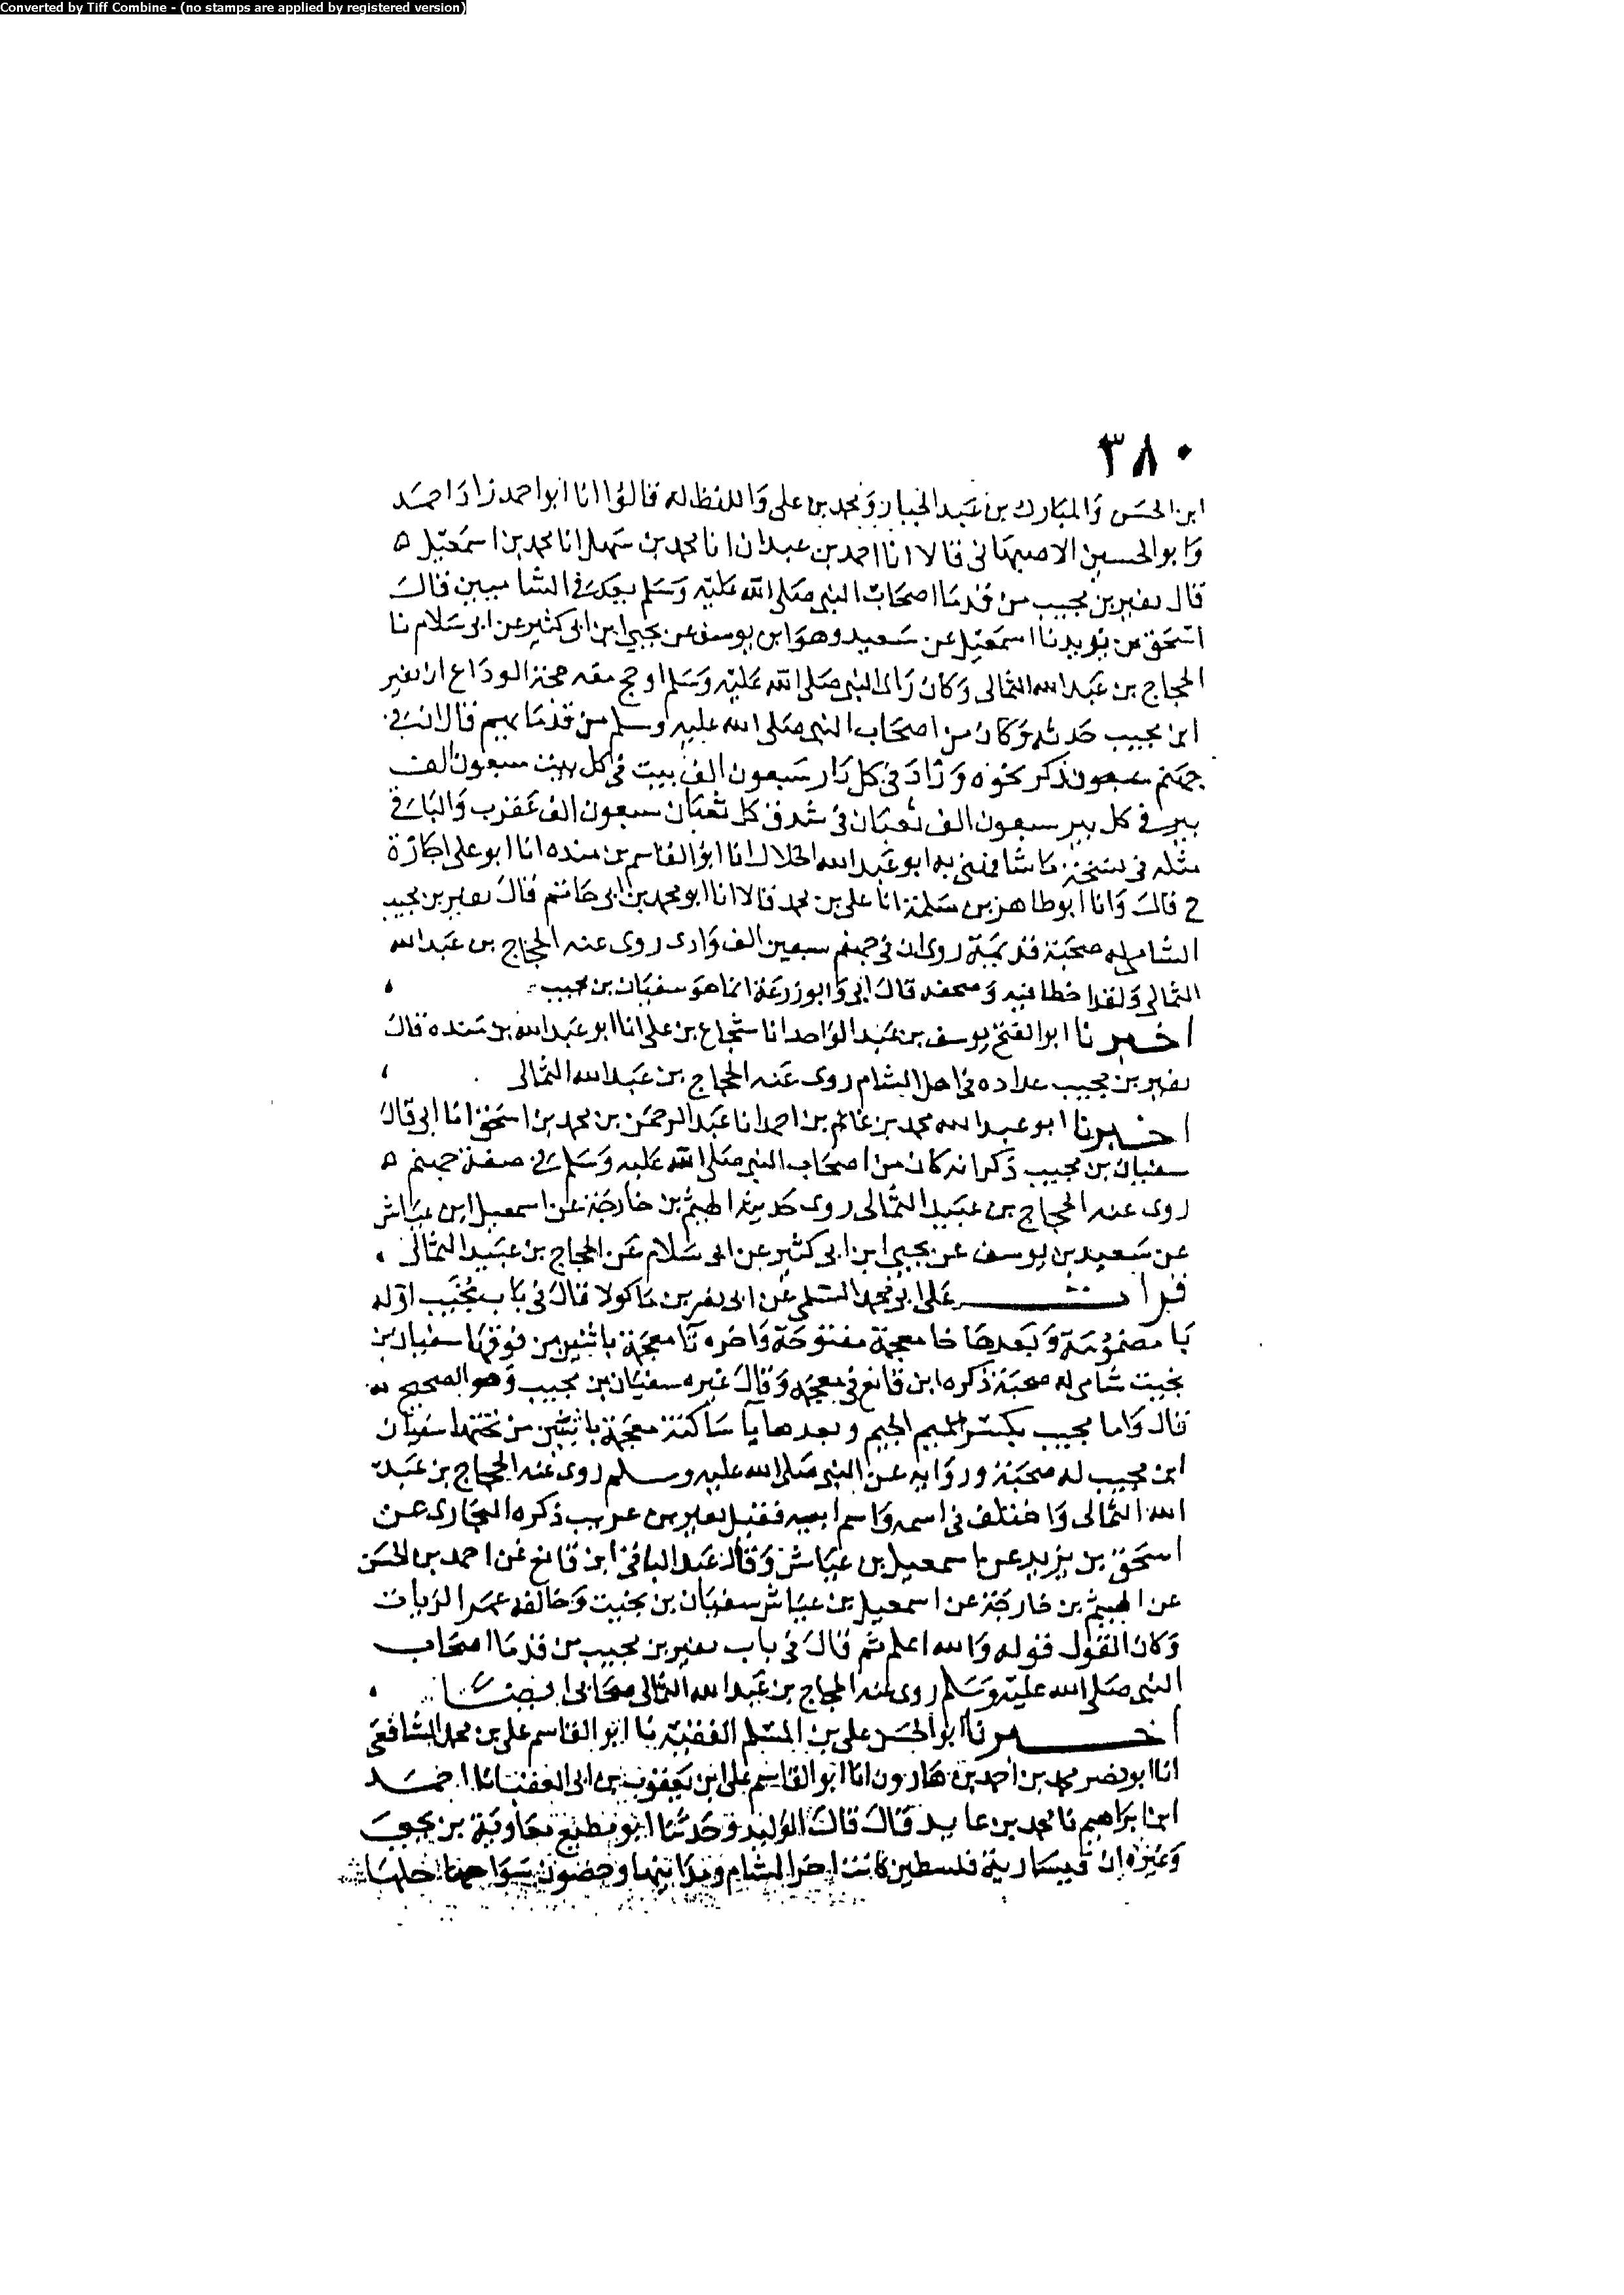 Converted by Tiff Combine - (no stamps are applied by registered version)
٣٨٠
ابن الحسن والمبارك بن عبد الجبار ومحمد بن علي واللفظ له قالوا انا ابو احمد زاد احمد
وابو الحسين الاصبهاني قالا انا احمد بن عبدان انا محمد بن سهل انا محمد بن اسمعيل ه
قال نفير بن مجيب من قدما اصحاب النبي صلى الله عليه وسلم في الشاميين قال
اسحق بن يزيد نا اسمعيل عن سعيد وهو ابن يوسف عن يحيى ابن ابي كثير عن ابي سلام نا
الحجاج بن عبد الله الثمالي وكان راى النبي صلى الله عليه وسلم او حج معه حجة الوداع ان نفير
ابن مجيب حدثه وكان من اصحاب النبي صلى الله عليه وسلم من قدمايهم قال ان في
جهنم سبعون فذكر نحوه وزاد في كل دار سبعون الف بيت في كل بيت سبعون الف
بير في كل بير سبعون الف ثعبان في شدق كل ثعبان سبعون الف عقرب والباقي
مثله في نسخة ما شافهني به ابو عبد الله الخلال انا ابو القاسم بن منده انا ابو علي اجازة
ح قال وانا ابو طاهر بن سلمة انا علي بن محمد قالا انا ابو محمد بن ابي حاتم قال نفير بن مجيب
الشامي له صحبة قديمة روى ان في جهنم سبعين الف وادى روى عنه الحجاج بن عبد الله
الثمالي ولقد اخطا فيه وصحفه قال ابي وابو زرعة انما هو سفيان بن مجيب
اخبرنا ابو الفتح يوسف بن عبد الواحد انا شجاع بن علي انا ابو عبد الله بن منده قال
نفير بن مجيب عداده في اهل الشام روى عنه الحجاج بن عبد الله الثمالي
اخبرنا ابو عبد الله محمد بن غانم بن احمد انا عبد الرحمن بن محمد بن اسحق انا ابي قال
سفيان بن مجيب ذكر انه كان من اصحاب النبي صلى الله عليه وسلم في صفة جهنم ه
روى عنه الحجاج بن عبيد الثمالي روى حديثه الهيثم بن خارجة عن اسمعيل ابن عياش
عن سعيد بن يوسف عن يحيى ابن ابي كثير عن ابي سلام عن الحجاج بن عبيد الثمالي
قرات على ابي محمد السلمي عن ابي نصر بن ماكولا قال في باب بخيت اوله
با مضمومة وبعدها خا معجمة مفتوحة واخره تا معجمة باثنين من فوقها سفيان بن
بخيت شامي له صحبة ذكره ابن قانع في معجمه وقال غيره سفيان بن مجيب وهو الصحيح
قال واما مجيب بكسر الجيم وبعدها يا ساكنة معجمة باثنتين من تحتها سفيان
ابن مجيب له صحبة ورواية عن النبي صلى الله عليه وسلم روى عنه الحجاج بن عبد
الله الثمالي واختلف في اسمه واسم ابيه فقيل نفير بن عريب ذكره البخاري عن
اسحق بن يزيد عن اسمعيل بن عياش وقال عبد الباقي ابن قانع عن احمد بن الحسن
عن الهيثم بن خارجة عن اسمعيل بن عياش سفيان بن بخيت وخالفه عمر الزيات
وكان القول قوله والله اعلم ثم قال في باب نفير بن مجيب من قدما اصحاب
النبي صلى الله عليه وسلم روى عنه الحجاج بن عبد الله الثمالي صحابي ايضا
اخبرنا ابو الحسن علي بن المسلم الفقيه نا ابو القاسم علي بن محمد الشافعي
انا ابو نصر محمد بن احمد بن هارون انا ابو القاسم علي ابن يعقوب بن ابي العقب انا احمد
ابن ابراهيم نا محمد بن عايد قال قال الوليد وحدثنا ابو مطيع معاوية بن يحيى
وغيره ان قيسارية فلسطين كانت اخر الشام ومداينها وحصون سواحلها